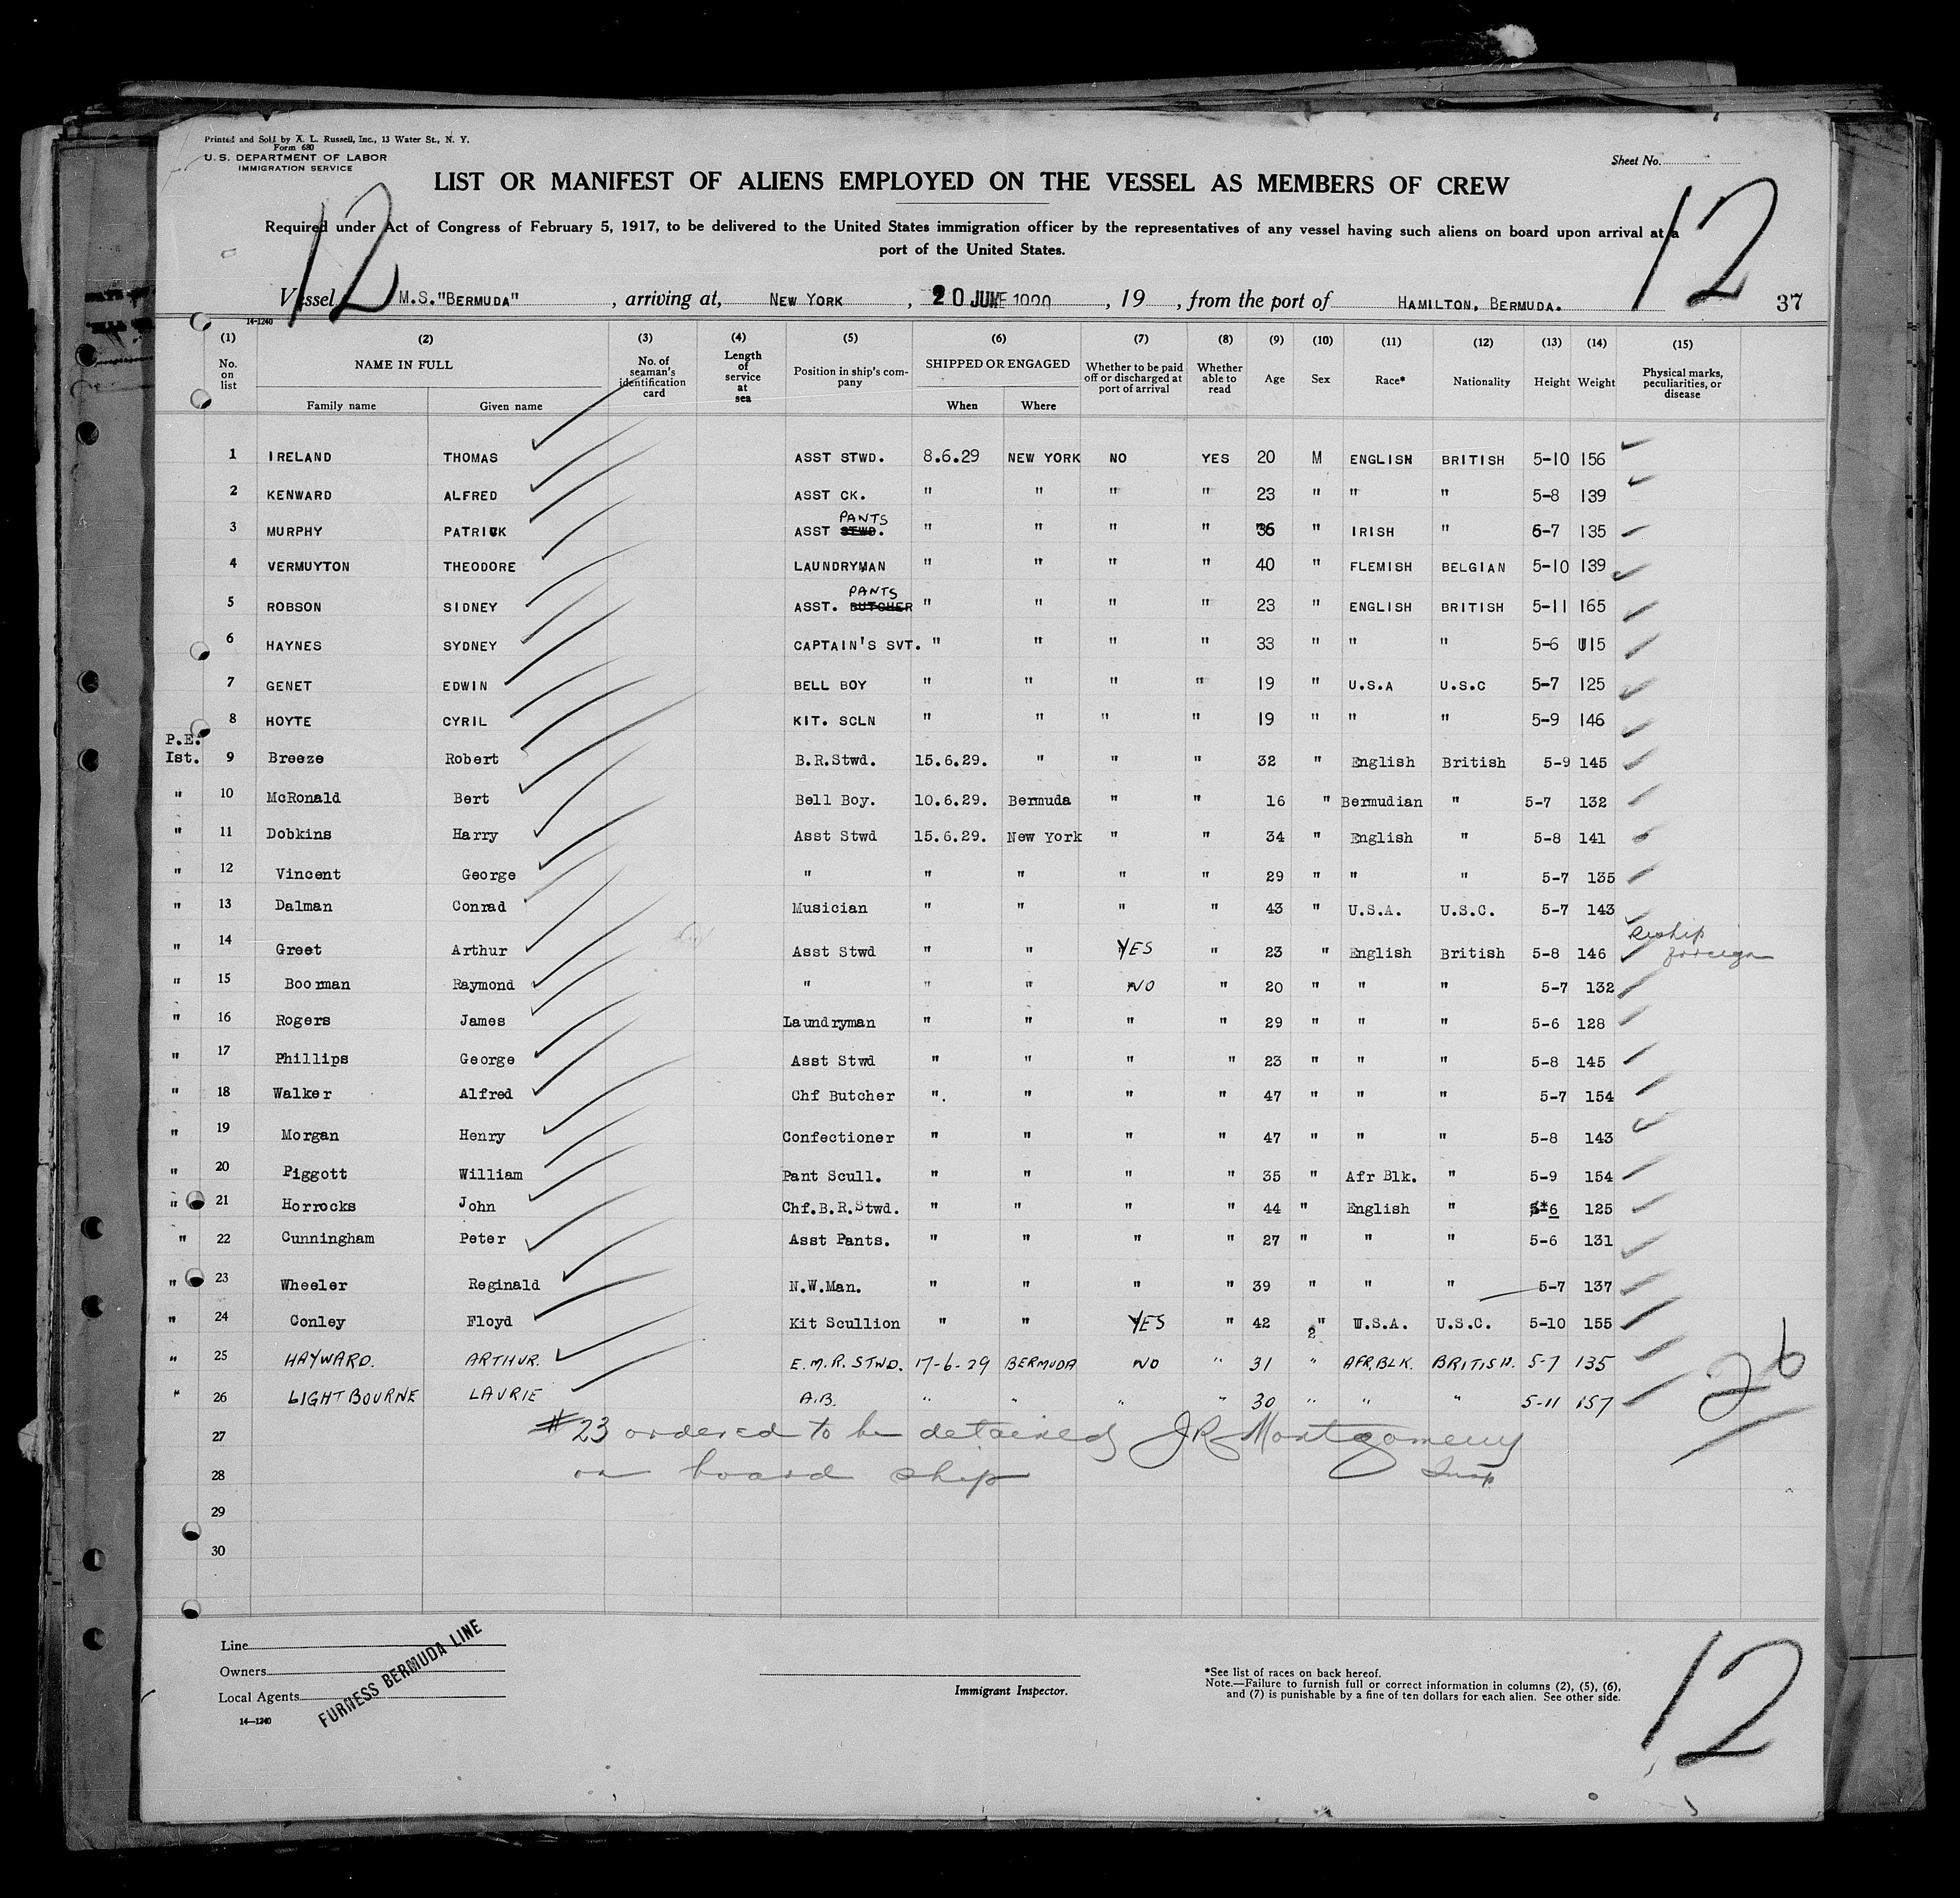 Printed and Sold by A. L. Russell, Inc., 13 Water St., N. Y.
Form 680
U. S. DEPARTMENT OF LABOR
IMMIGRATION SERVICE
Sheet No.
LIST OR MANIFEST OF ALIENS EMPLOYED ON THE VESSEL AS MEMBERS OF CREW
12 12
Required under Act of Congress of February 5, 1917, to be delivered to the United States immigration officer by the representatives of any vessel having such aliens on board upon arrival at a
port of the United States.
Vessel M.S."BERMUDA", arriving at, NEW YORK, 20 JUNE, 19, from the port of HAMILTON, BERMUDA. 37
14-1240
(1) (2) (3) (4) (5) (6) (7) (8) (9) (10) (11) (12) (13) (14) (15)
No. on list NAME IN FULL Family name Given name No. of seaman's identification card Length of service at sea Position in ship's company SHIPPED OR ENGAGED When Where Whether to be paid off or discharged at port of arrival Whether able to read Age Sex Race* Nationality Height Weight Physical marks, peculiarities, or disease
1 IRELAND THOMAS ASST STWD. 8.6.29 NEW YORK NO YES 20 M ENGLISH BRITISH 5-10 156
2 KENWARD ALFRED ASST CK. " " " " 23 " " " 5-8 139
3 MURPHY PATRICK ASST STWD. PANTS " " " " 36 " IRISH " 6-7 135
4 VERMUYTON THEODORE LAUNDRYMAN " " " " 40 " FLEMISH BELGIAN 5-10 139
5 ROBSON SIDNEY ASST. BUTCHER PANTS " " " " 23 " ENGLISH BRITISH 5-11 165
6 HAYNES SYDNEY CAPTAIN'S SVT. " " " " 33 " " " 5-6 115
7 GENET EDWIN BELL BOY " " " " 19 " U.S.A U.S.C 5-7 125
8 HOYTE CYRIL KIT. SCLN " " " " 19 " " " 5-9 146
P.E.
Ist. 9 Breeze Robert B.R.Stwd. 15.6.29. " " " 32 " English British 5-9 145
" 10 McRonald Bert Bell Boy. 10.6.29. Bermuda " " 16 " Bermudian " 5-7 132
" 11 Dobkins Harry Asst Stwd 15.6.29. New York " " 34 " English " 5-8 141
" 12 Vincent George " " " " " 29 " " " 5-7 135
" 13 Dalman Conrad Musician " " " " 43 " U.S.A. U.S.C. 5-7 143
" 14 Greet Arthur Asst Stwd " " YES " 23 " English British 5-8 146 Reship foreign
" 15 Boorman Raymond " " " NO " 20 " " " 5-7 132
" 16 Rogers James Laundryman " " " " 29 " " " 5-6 128
" 17 Phillips George Asst Stwd " " " " 23 " " " 5-8 145
" 18 Walker Alfred Chf Butcher ". " " " 47 " " " 5-7 154
" 19 Morgan Henry Confectioner " " " " 47 " " " 5-8 143
" 20 Piggott William Pant Scull. " " " " 35 " Afr Blk. " 5-9 154
" 21 Horrocks John Chf.B.R.Stwd. " " " " 44 " English " 5-6 125
" 22 Cunningham Peter Asst Pants. " " " " 27 " " " 5-6 131
" 23 Wheeler Reginald N.W.Man. " " " " 39 " " " 5-7 137
" 24 Conley Floyd Kit Scullion " " YES " 42 " U.S.A. U.S.C. 5-10 155
2
" 25 HAYWARD. ARTHUR. E.M.R. STWD. 17-6-29 BERMUDA NO " 31 " AFR.BLK. BRITISH. 5-7 135
" 26 LIGHTBOURNE LAURIE A.B. " " " " 30 " " " 5-11 157
26
27 #23 ordered to be detained JR Montgomery
28 on board ship Insp
29
30
Line
Owners
Local Agents
FURNESS BERMUDA LINE
14-1240
Immigrant Inspector.
*See list of races on back hereof.
Note.—Failure to furnish full or correct information in columns (2), (5), (6),
and (7) is punishable by a fine of ten dollars for each alien. See other side.
12